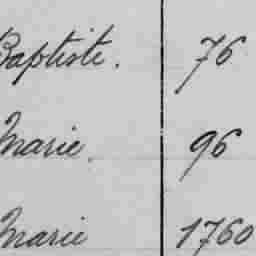 Baptiste. 76
Marie. 96
Marie 1760